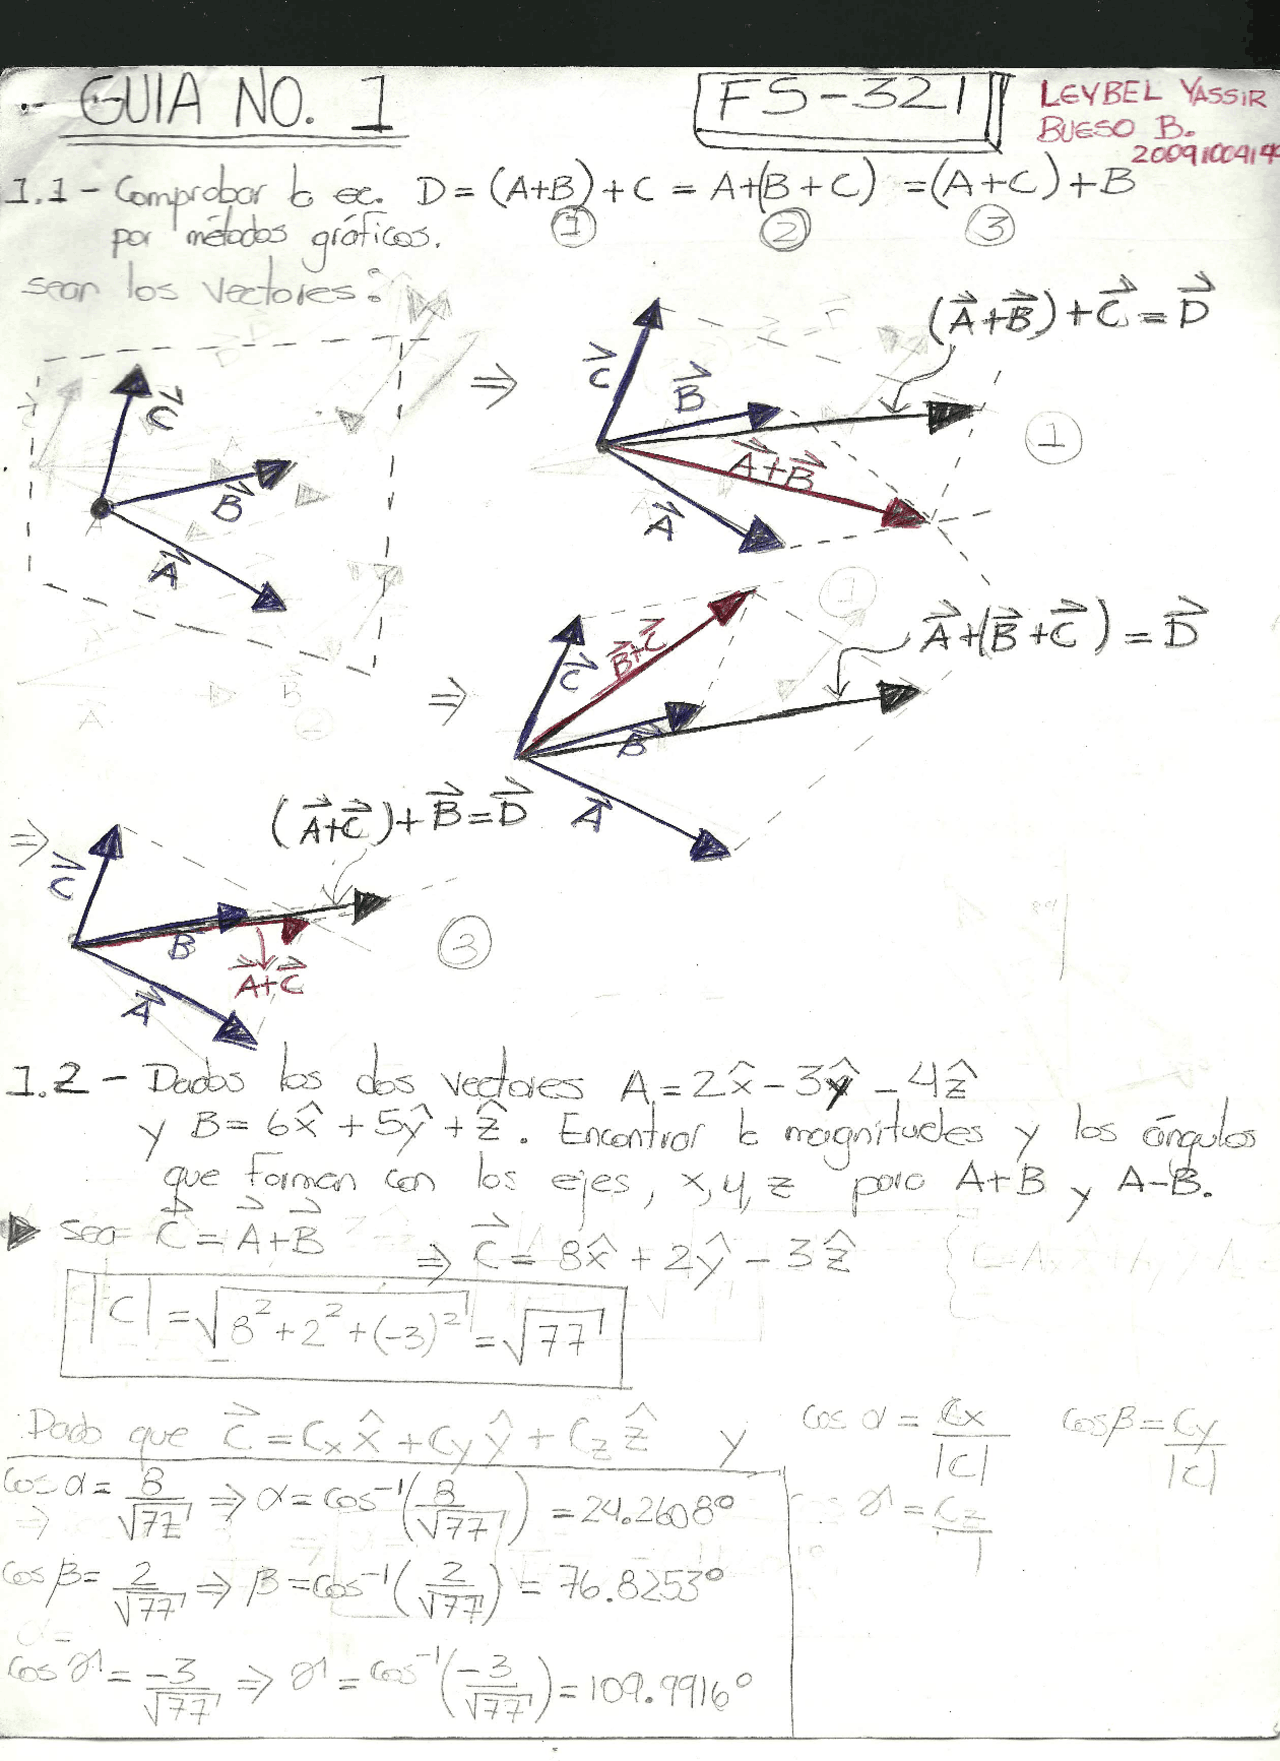 GUIA NO. 1
FS-321
LEYBEL YASSIR
BUESO B.
1.1- Comprobar la ec. D = (A+B)+C = A+(B+C) = (A+C)+B
① ② ③
por métodos gráficos.
sean los vectores:
C⃗
B⃗
A⃗
⇒
(A⃗+B⃗)+C⃗ = D⃗
C⃗
B⃗
①
A⃗+B⃗
A⃗
⇒
A⃗+(B⃗+C⃗) = D⃗
B⃗+C⃗
C⃗
B⃗
A⃗
⇒
(A⃗+C⃗)+B⃗=D⃗
C⃗
B⃗
③
A⃗+C⃗
A⃗
1.2- Dados los dos vectores A = 2x̂ - 3ŷ - 4ẑ
y B = 6x̂ + 5ŷ + ẑ. Encontrar la magnitudes y los ángulos
que forman con los ejes, x, y, z para A+B y A-B.
▶ sea C⃗ = A⃗+B⃗ ⇒ C⃗ = 8x̂ + 2ŷ - 3ẑ
|C| = √(8²+2²+(-3)²) = √77
Dado que C⃗ = Cxx̂ + Cyŷ + Czẑ y cos α = Cx/|C| cos β = Cy/|C|
cos γ = Cz/|
cos α = 8/√77 ⇒ α = cos⁻¹(8/√77) = 24.2608°
cos β = 2/√77 ⇒ β = cos⁻¹(2/√77) = 76.8253°
cos γ = -3/√77 ⇒ γ = cos⁻¹(-3/√77) = 109.9916°